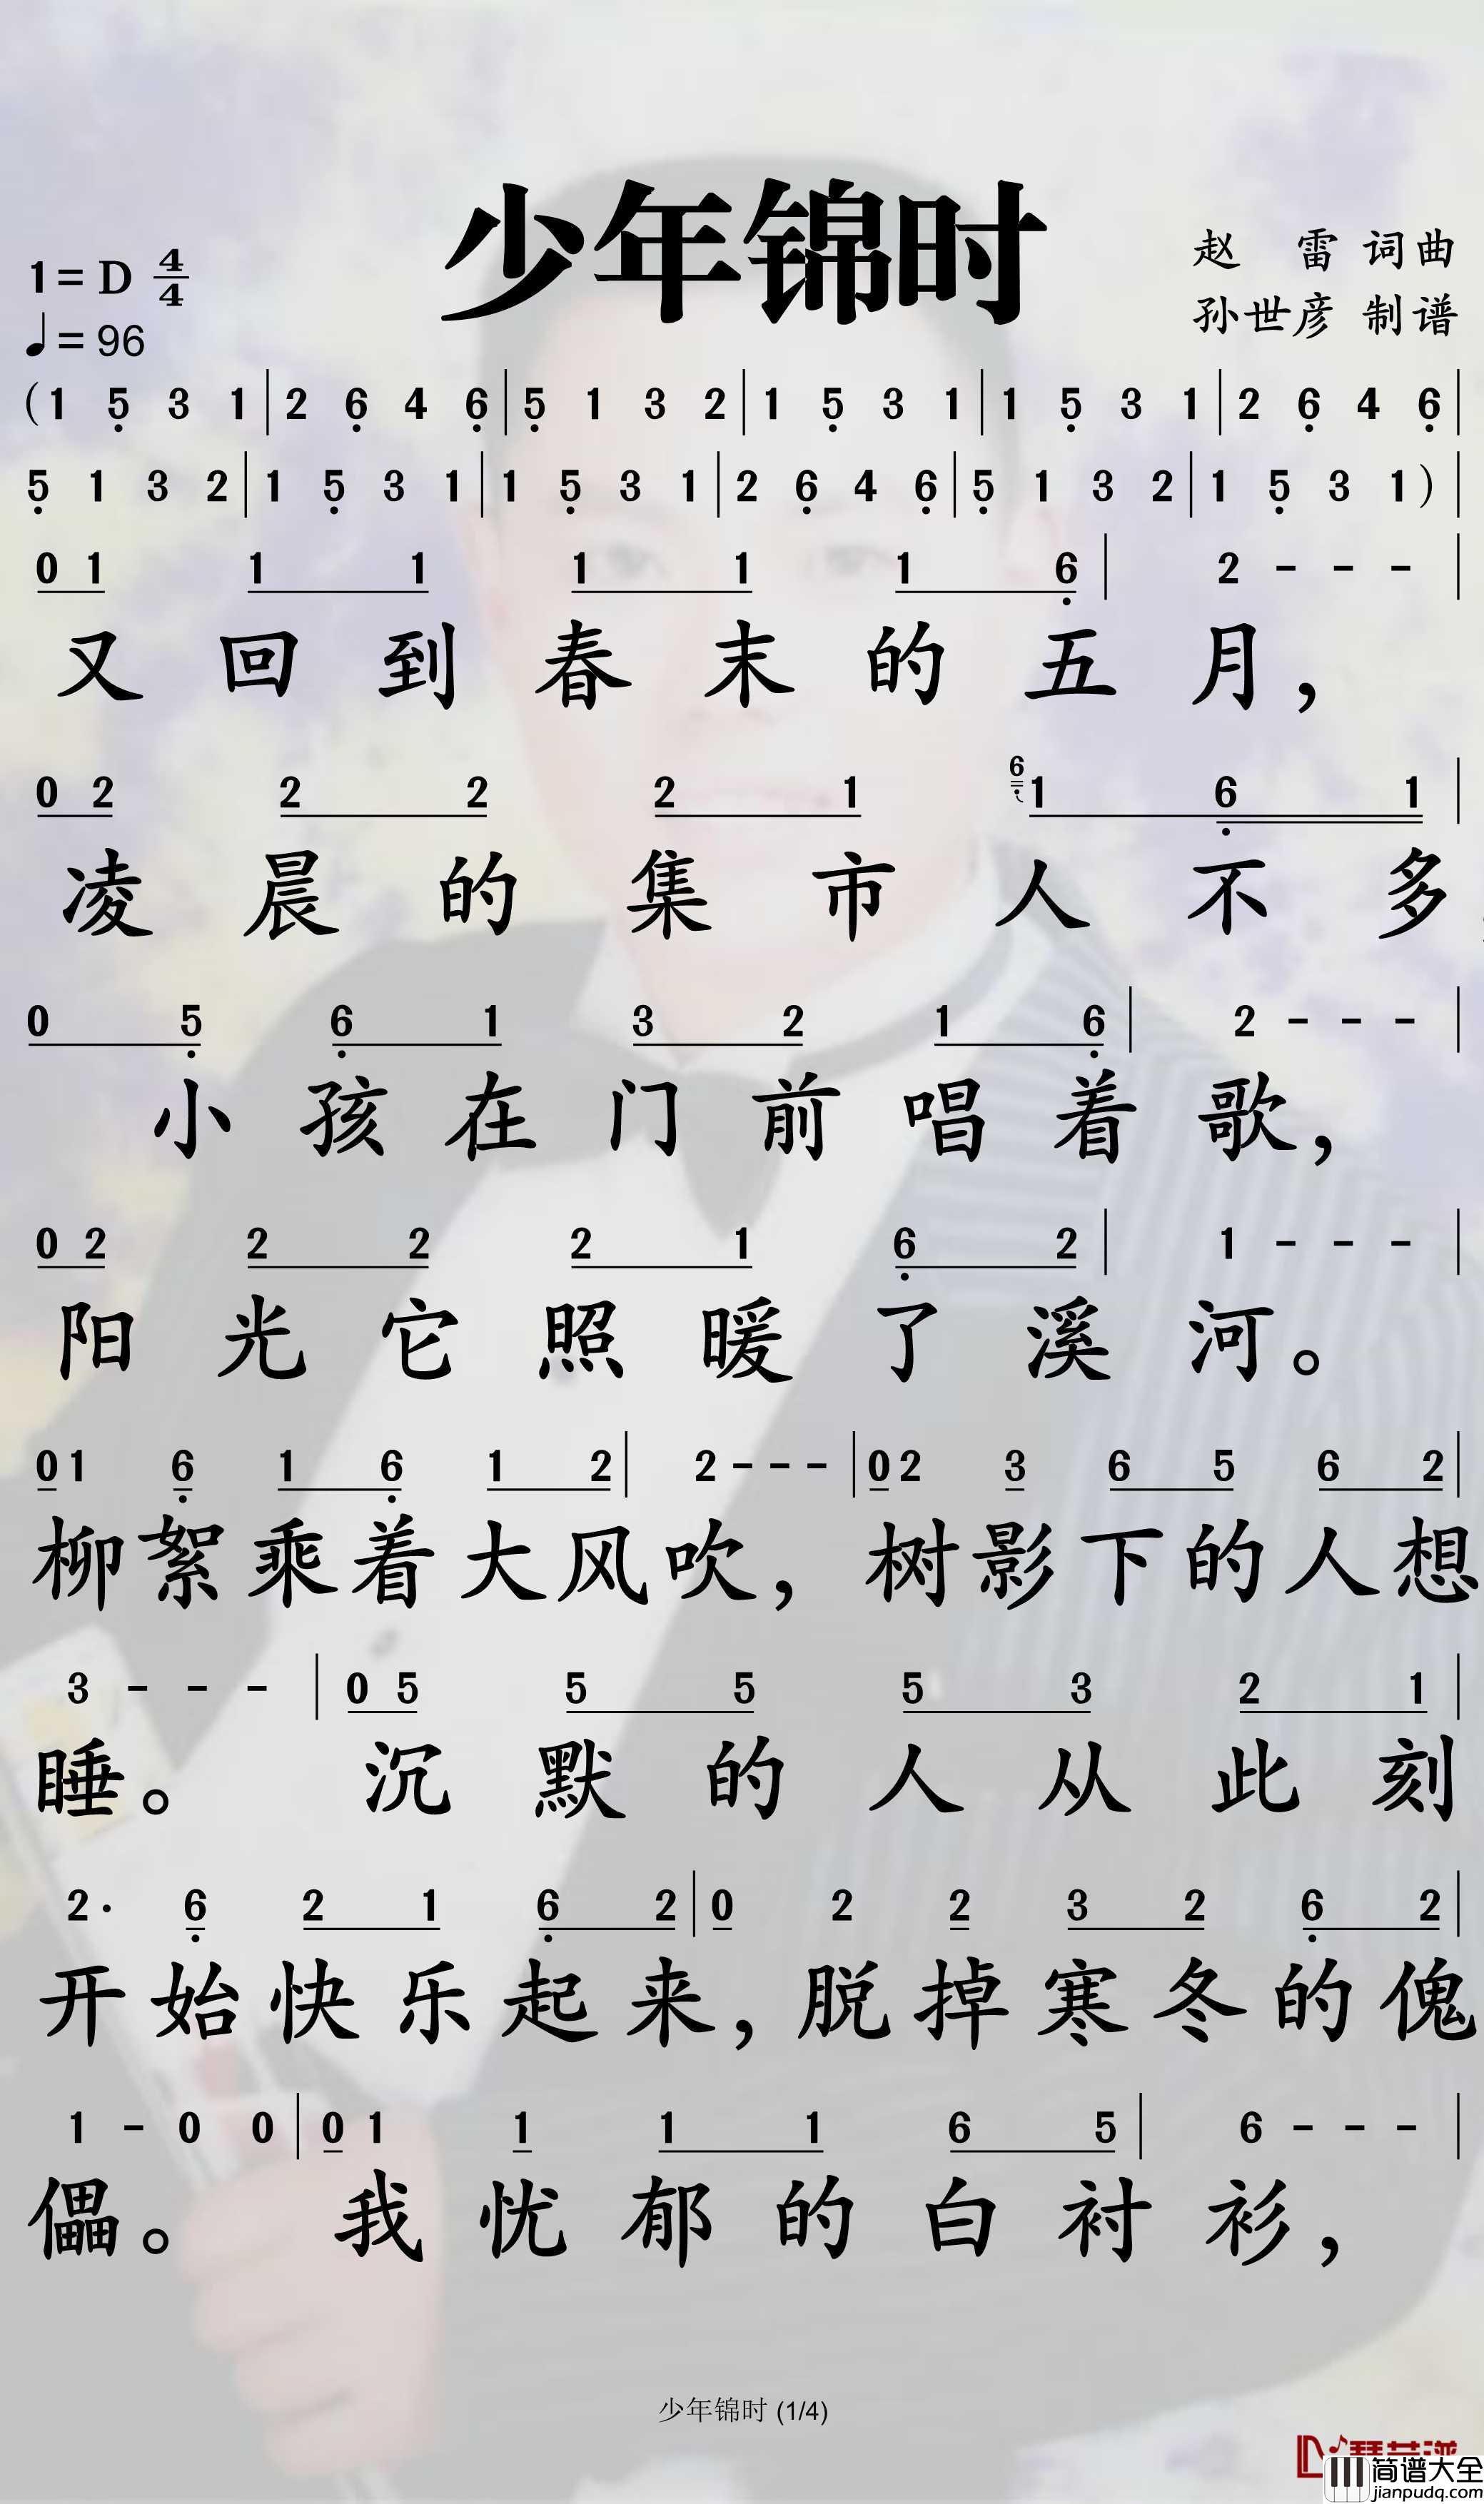 少年锦时
赵 雷 词曲
孙世彦 制谱
1= D 4/4
♩= 96
(1 5̣ 3 1 | 2 6̣ 4 6̣ | 5̣ 1 3 2 | 1 5̣ 3 1 | 1 5̣ 3 1 | 2 6̣ 4 6̣ |
5̣ 1 3 2 | 1 5̣ 3 1 | 1 5̣ 3 1 | 2 6̣ 4 6̣ | 5̣ 1 3 2 | 1 5̣ 3 1) |
0 1 1 1 1 1 1 6̣ | 2 - - - |
又回到春末的五月，
0 2 2 2 2 1 6̣ 1 6̣ 1 |
凌晨的集市人不多
0 5̣ 6̣ 1 3 2 1 6̣ | 2 - - - |
小孩在门前唱着歌，
0 2 2 2 2 1 6̣ 2 | 1 - - - |
阳光它照暖了溪河。
0 1 6̣ 1 6̣ 1 2 | 2 - - - | 0 2 3 6 5 6 2 |
柳絮乘着大风吹，树影下的人想
3 - - - | 0 5 5 5 5 3 2 1 |
睡。 沉默的人从此刻
2· 6̣ 2 1 6̣ 2 | 0 2 2 3 2 6̣ 2 |
开始快乐起来，脱掉寒冬的傀
1 - 0 0 | 0 1 1 1 1 6 5 | 6 - - - |
儡。 我忧郁的白衬衫，
少年锦时 (1/4)
简谱大全
jianpudq.com